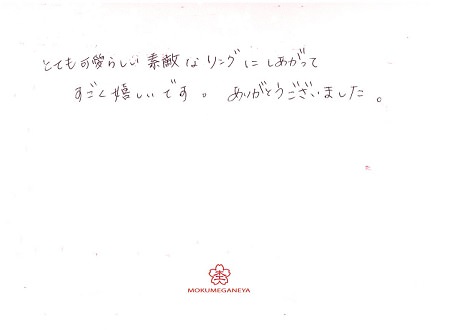 とても可愛らしい素敵なリングにしあがって
すごく嬉しいです。ありがとうございました。
MOKUMEGANEYA